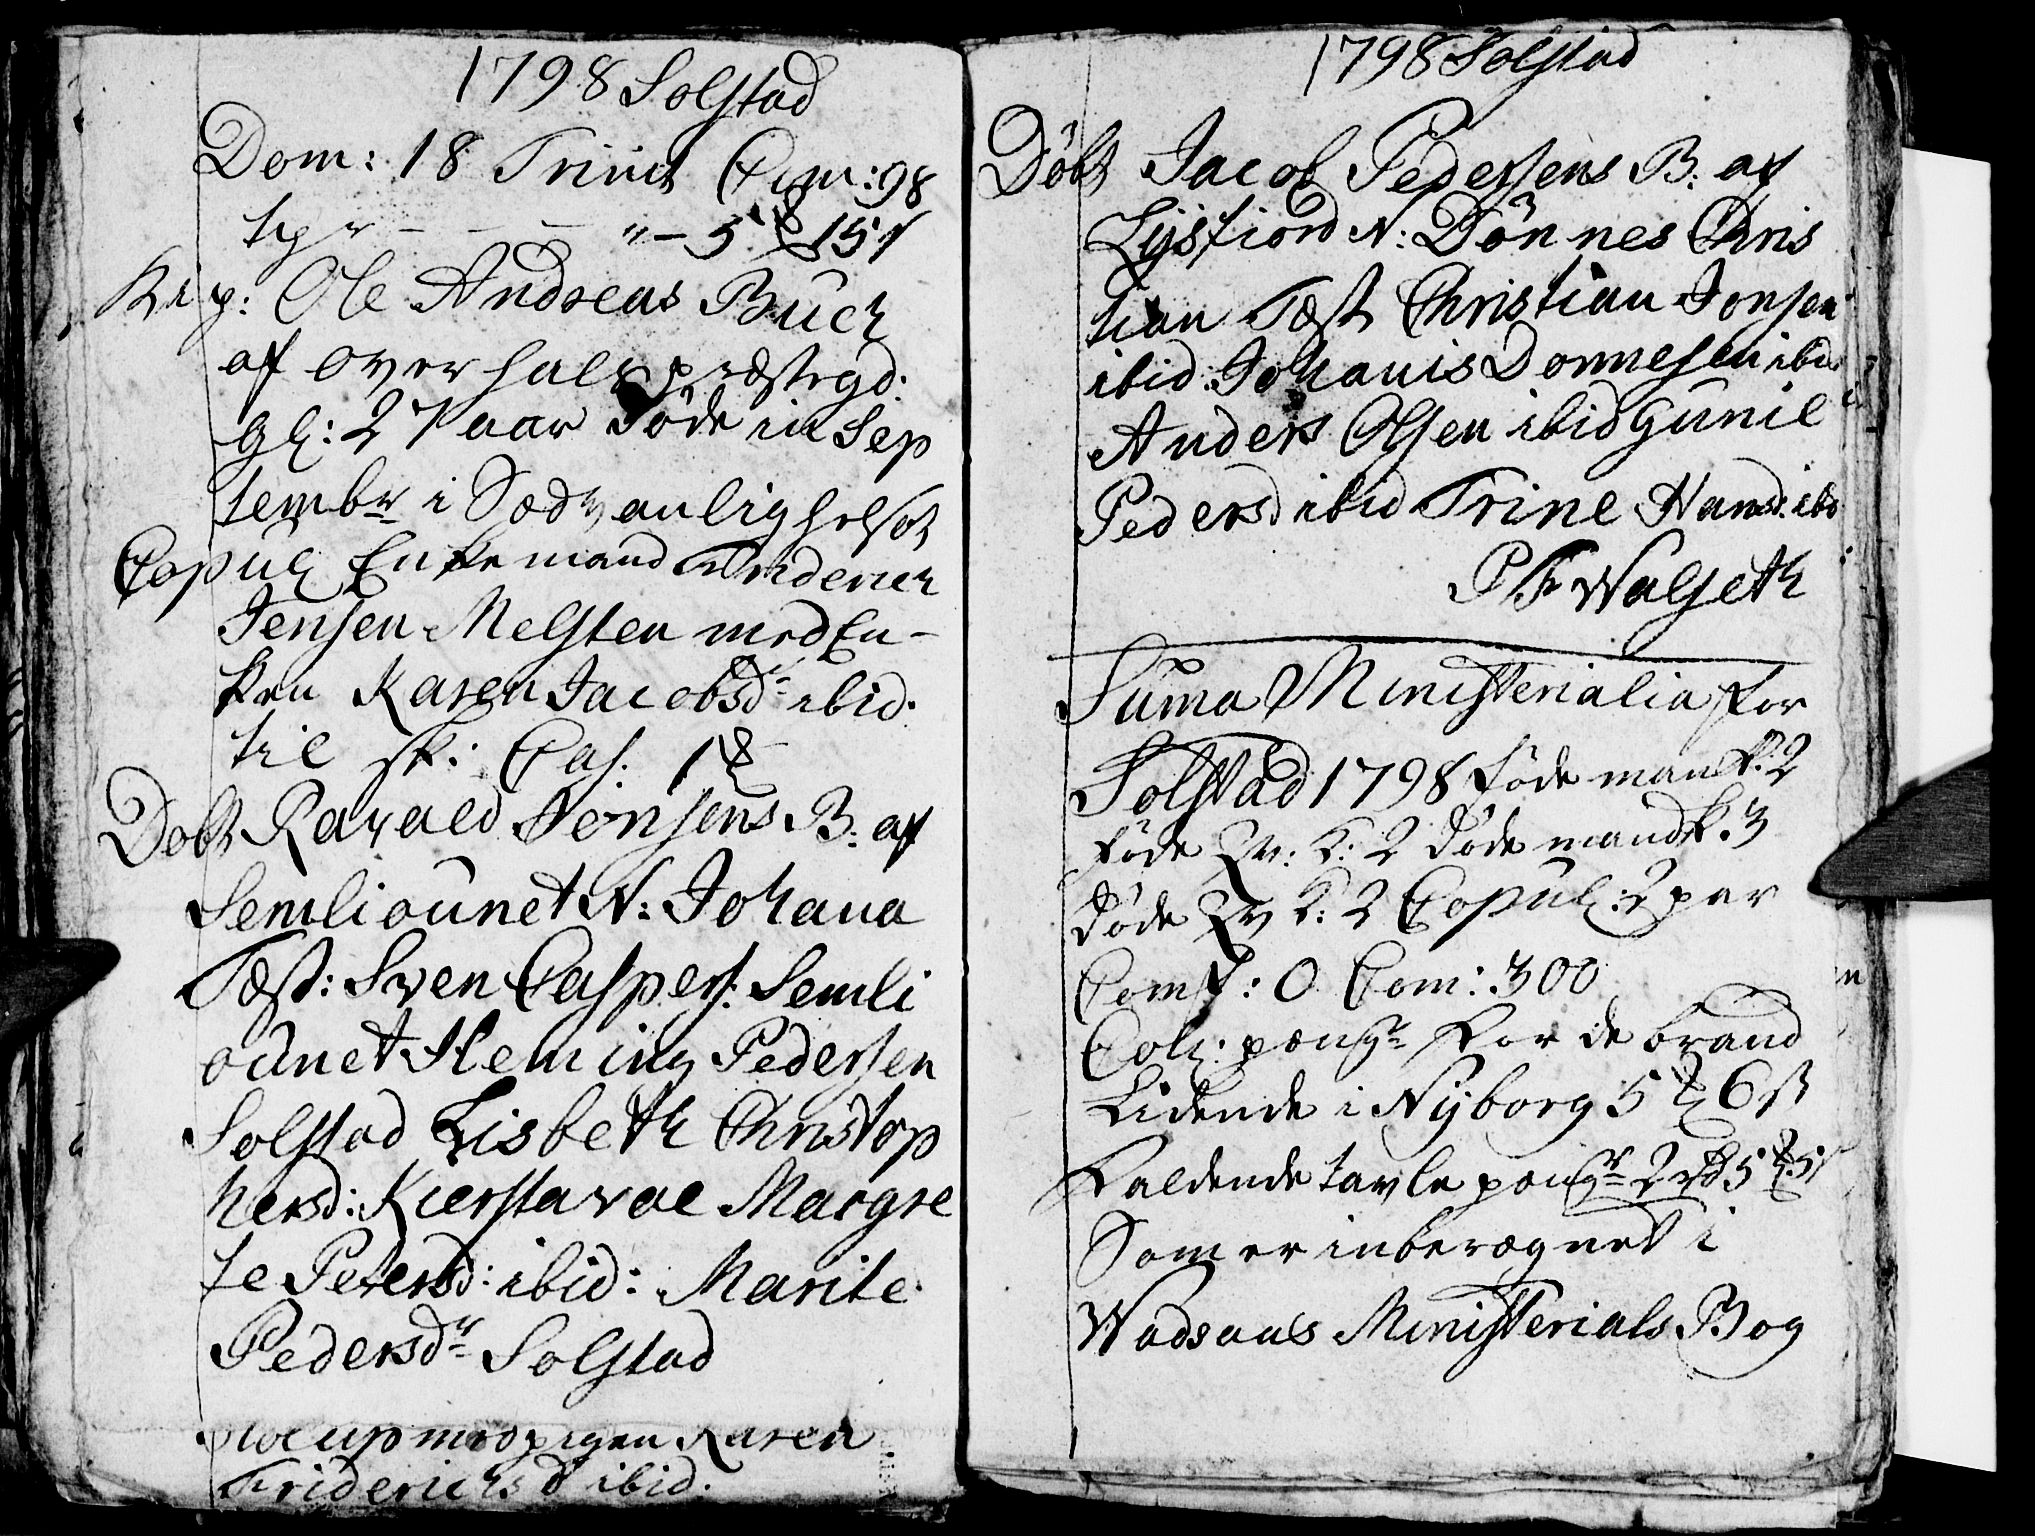 1798 Solstad
Dom: 18 Trinit Com: 98
tpr - - - " - 5 ₰ 15 s
Rip: Ole Andreas Buch
af Overhals præstegd.
gl: 27 aar døde in Sep
tembr i Sædvanlig
Copul Enkemand Friderich
Jensen Melsten med En-
ken Karen Jacobsdr ibid.
til sk: Cas. 1 ₰
Døbt Ravald Jensens B. af
Semliounet N: Johana
Test: Sven Caspers. Semli
ounet Heming Pedersen
Solstad Lisbeth Christop
hersd: Kierstavae Margre
te Petersd: ibid: Marite
Pedersdr Solstad
med pigen Karen
Friderichsd ibid.
1798 Solstad
Døbt Jacob Pedersens B. af
Lysfiord N: Dönnes Chris
tian Test Christian Jonsen
ibid: Johanis Donnesen ibid
Anders Olsen ibid Gunil
Pedersd ibid Trine Hansd: ibd
P F Walseth
Suma Ministerialia for
Solstad 1798 føde mank. 2
føde Qv: k: 2 døde mandk. 3
døde Qv k: 2 Copul: 2 par
Comf: 0 Com: 300
Coll: pengr for de brand
Lidende i Nyborg 5 ₰ 6 s
Faldende tavle pengr 2 rd 5 ₰ 5 s
Som er inberegnet i
Wadsaas Ministerials Bog